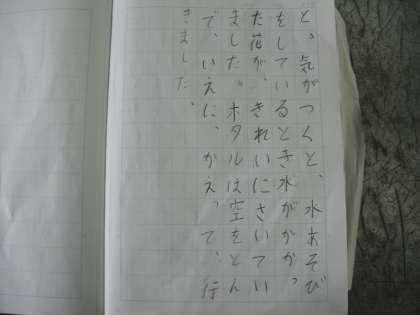 と、気がつくと、水あそび
をしているとき水がかかっ
た花が、きれいにさいてい
ました。ホタルは空をとん
で、いえに、かえって、行
きました、